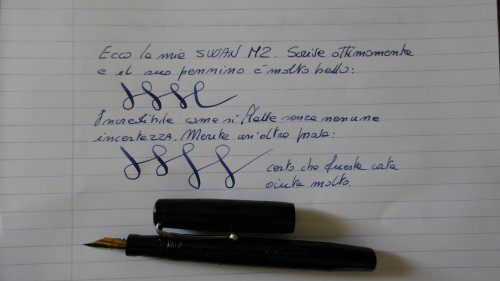 Ecco la mia SWAN M2. Scrive ottimamente
e il suo pennino è molto bello:
Incredibile come si flette senza nessuna
incertezza. Merita un'altra prova:
certo che questa carta
aiuta molto.